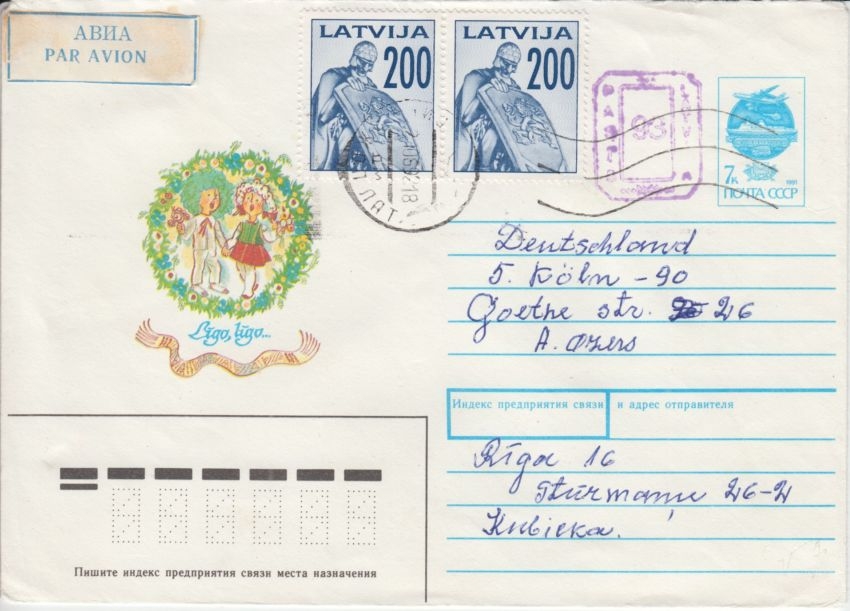 АВИА
PAR AVION
LATVIJA
200
LATVIJA
200
93
7к
1991
ПОЧТА СССР
Līgo, līgo...
Deutschland
5. Köln - 90
Goethe str. 26
A. Ozers
Индекс предприятия связи и адрес отправителя
Rīga 16
Stūrmaņu 26-2
Kubicka.
Пишите индекс предприятия связи места назначения